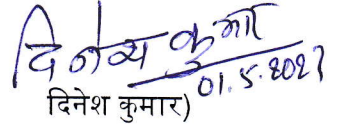 दिनेश कुमार
01.5.2023
दिनेश कुमार)